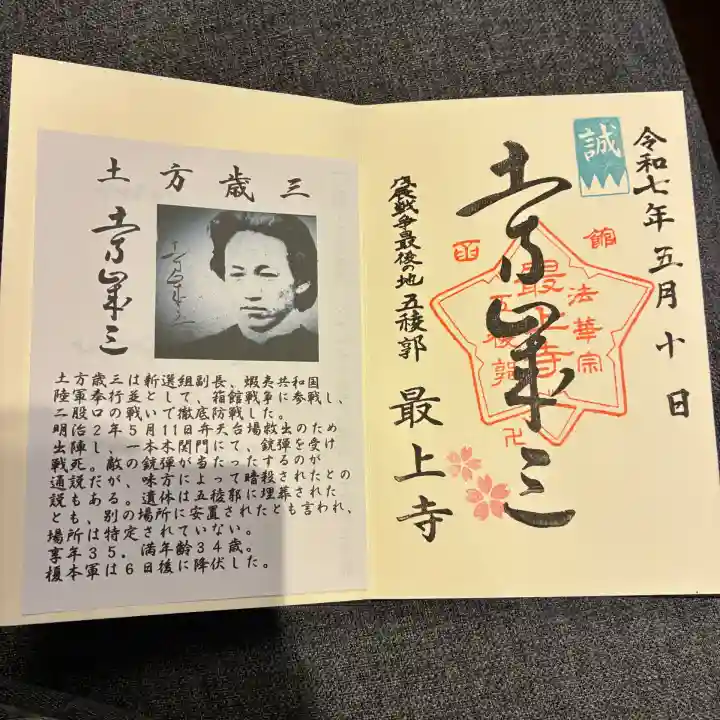 土方歳三
土方歳三
土方歳三は新選組副長、蝦夷共和国
陸軍奉行並として、箱館戦争に参戦し、
二股口の戦いで徹底防戦した。
明治2年5月11日弁天台場救出のため
出陣し、一本木関門にて、銃弾を受け
戦死。敵の銃弾が当たったするのが
通説だが、味方によって暗殺されたとの
説もある。遺体は五稜郭に埋葬された
とも、別の場所に安置されたとも言われ、
場所は特定されていない。
享年35．満年齢34歳。
榎本軍は6日後に降伏した。
令和七年五月十日
誠
土方歳三
戊辰戦争最後の地 五稜郭 最上寺
函館
法華宗
最上寺
五稜郭
卍